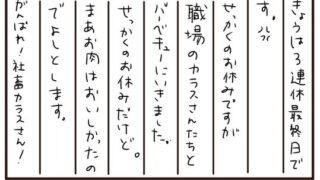 きょうは3連休最終日で
す。
せっかくのお休みですが
職場のカラスさんたちと
バーベキューにいきました。
せっかくのお休みだけど。
まあお肉はおいしかったの
でよしとします。
がんばれ!社畜カラスさん!